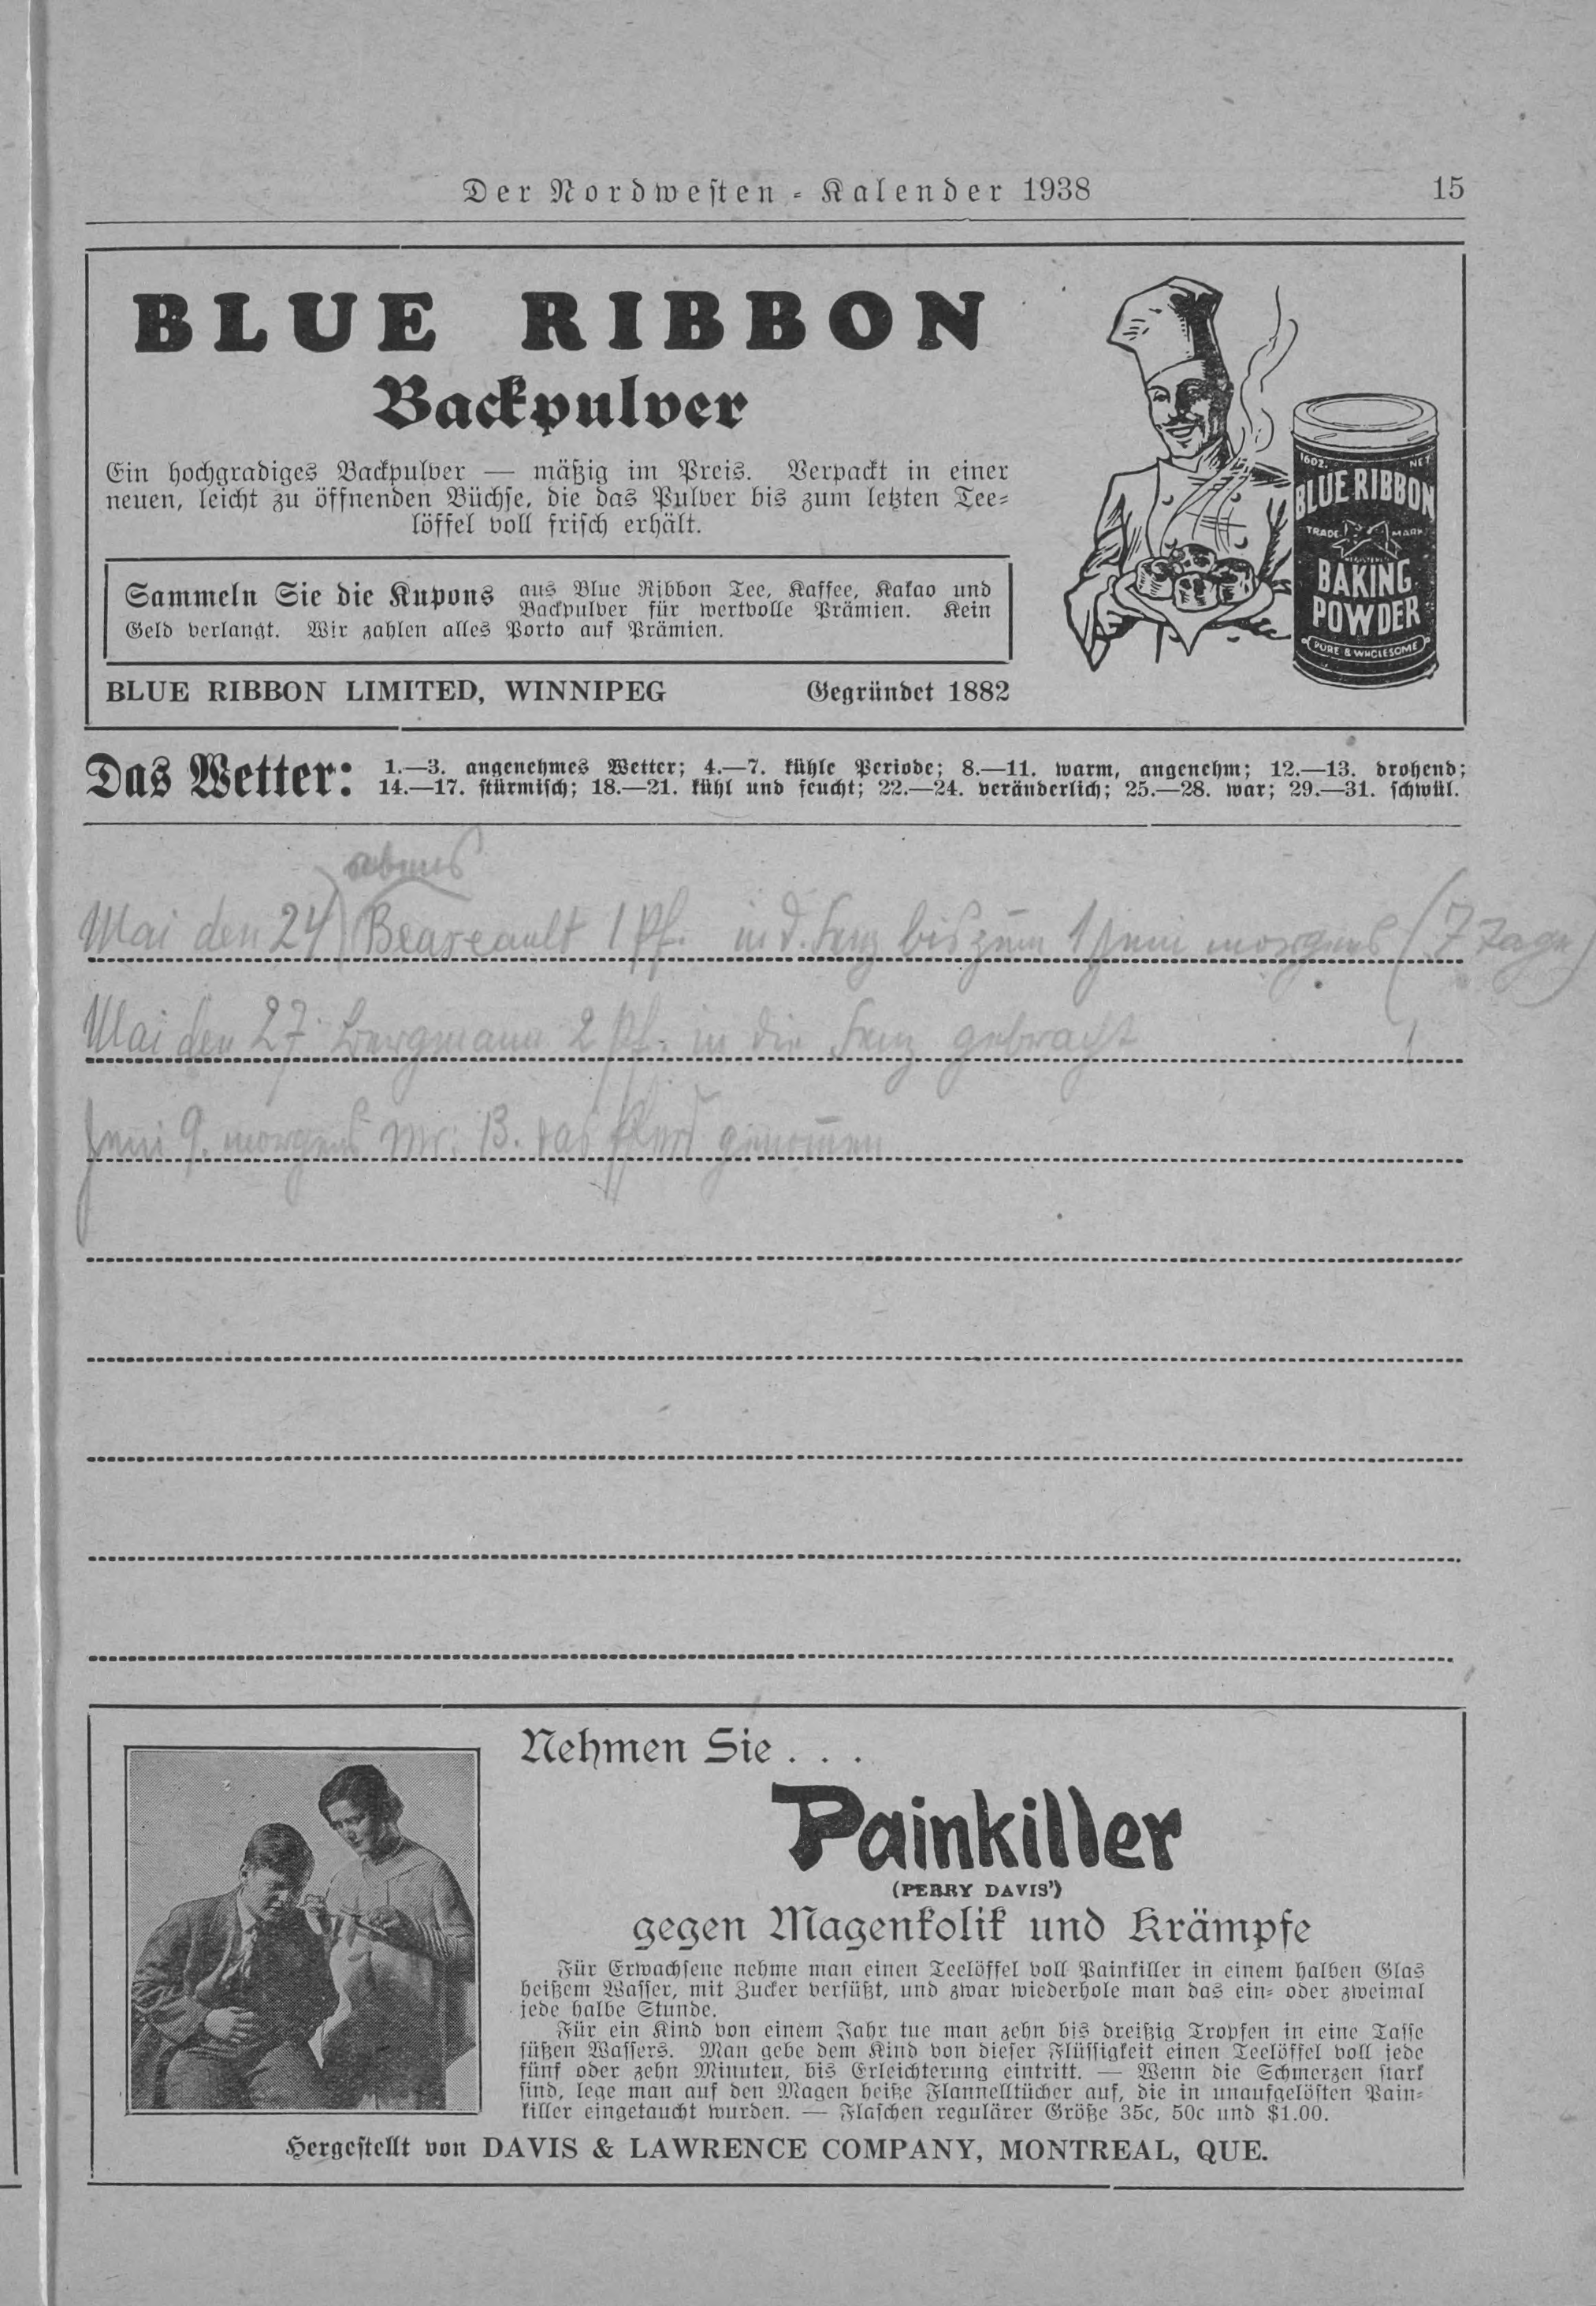 Der Nordwesten-Kalender 1938 15
BLUE RIBBON
Backpulver
Ein hochgradiges Backpulver — mäßig im Preis. Verpackt in einer
neuen, leicht zu öffnenden Büchse, die das Pulver bis zum letzten Tee-
löffel voll frisch erhält.
Sammeln Sie die Kupons aus Blue Ribbon Tee, Kaffee, Kakao und
Backpulver für wertvolle Prämien. Kein
Geld verlangt. Wir zahlen alles Porto auf Prämien.
BLUE RIBBON LIMITED, WINNIPEG Gegründet 1882
16 OZ. NET
BLUE RIBBON
TRADE MARK
BAKING
POWDER
PURE & WHOLESOME
Das Wetter: 1.—3. angenehmes Wetter; 4.—7. kühle Periode; 8.—11. warm, angenehm; 12.—13. drohend;
14.—17. stürmisch; 18.—21. kühl und feucht; 22.—24. veränderlich; 25.—28. war; 29.—31. schwül.
Mai den 24 1 Pf. in d. Fenz bis zum 1 Juni morgens (7 Tage)
Mai den 27. Bergmann 2 Pf. in die Fenz gebracht
Juni 9. morgens Mr. B. das Pferd genommen
Nehmen Sie . . .
Painkiller
(PERRY DAVIS')
gegen Magenkolik und Krämpfe
Für Erwachsene nehme man einen Teelöffel voll Painkiller in einem halben Glas
heißem Wasser, mit Zucker versüßt, und zwar wiederhole man das ein- oder zweimal
jede halbe Stunde.
Für ein Kind von einem Jahr tue man zehn bis dreißig Tropfen in eine Tasse
süßen Wassers. Man gebe dem Kind von dieser Flüssigkeit einen Teelöffel voll jede
fünf oder zehn Minuten, bis Erleichterung eintritt. — Wenn die Schmerzen stark
sind, lege man auf den Magen heiße Flannelltücher auf, die in unaufgelösten Pain-
killer eingetaucht wurden. — Flaschen regulärer Größe 35c, 50c und $1.00.
Hergestellt von DAVIS & LAWRENCE COMPANY, MONTREAL, QUE.